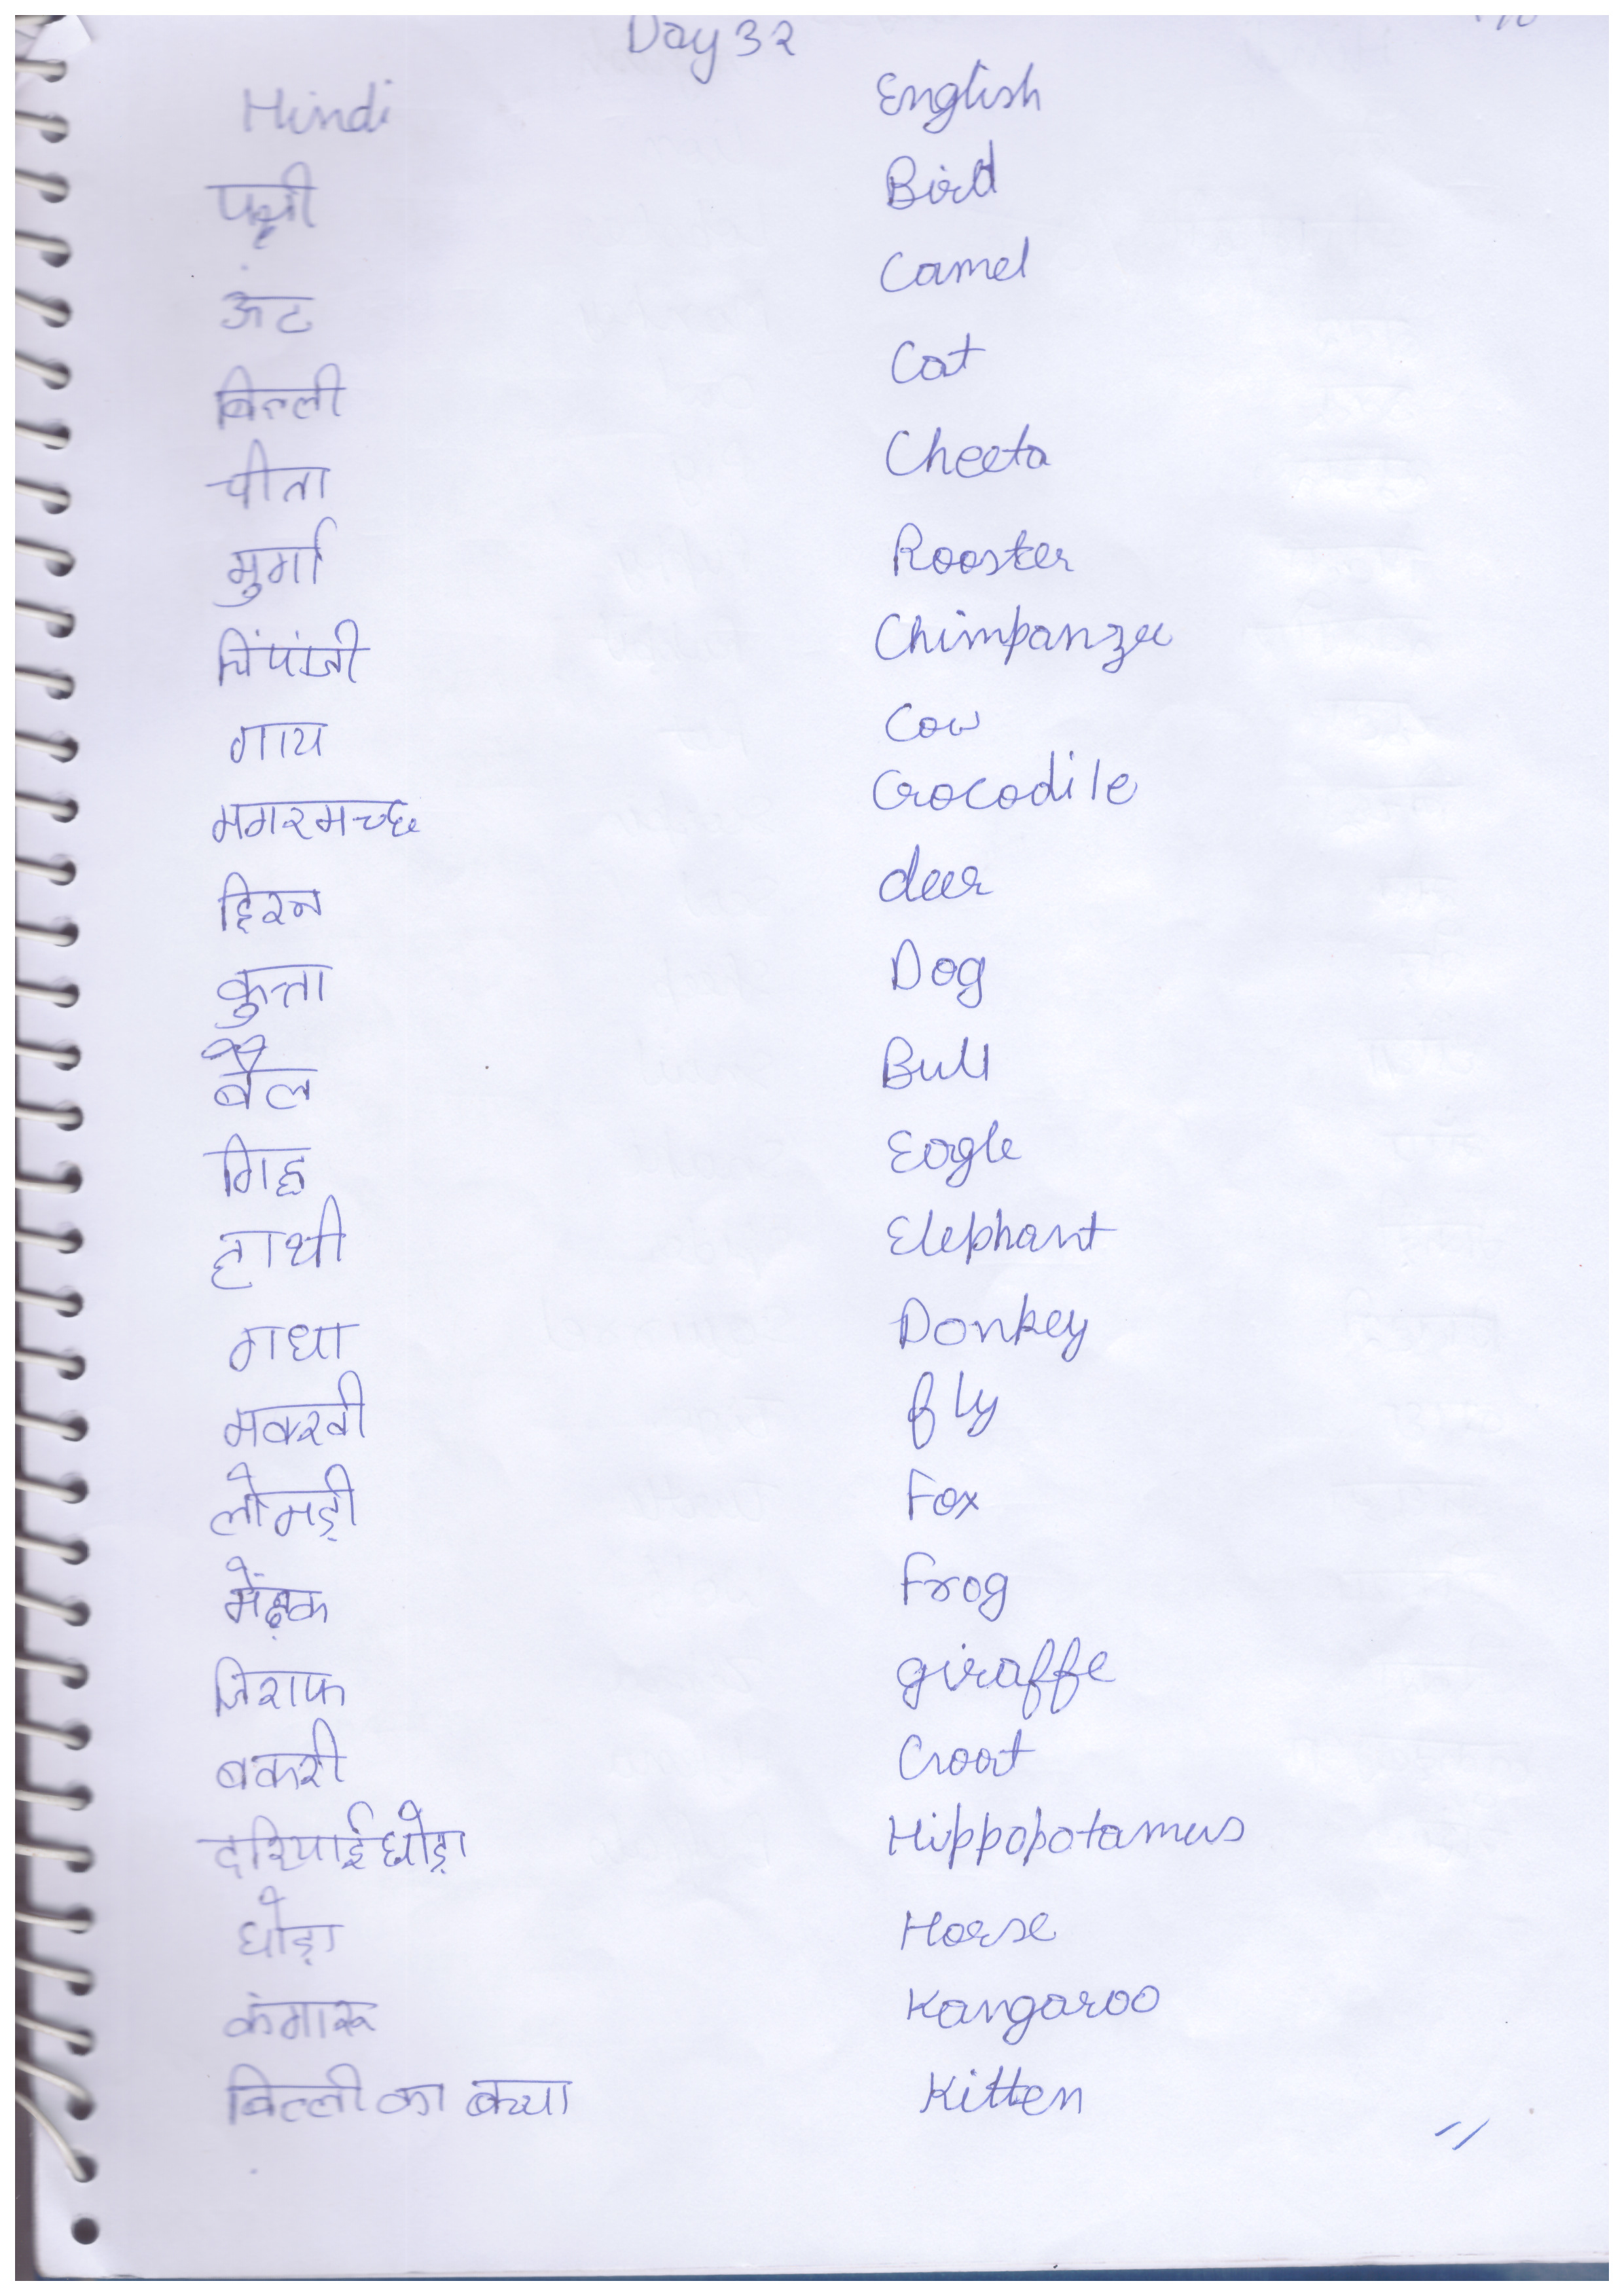 Day 32
Hindi English
पक्षी Bird
ऊंट Camel
बिल्ली Cat
चीता Cheeta
मुर्गा Rooster
चिंपांजी Chimpanzee
गाय Cow
मगरमच्छ Crocodile
हिरन deer
कुत्ता Dog
बैल Bull
गिद्ध Eagle
हाथी Elephant
गधा Donkey
मक्खी fly
लोमड़ी Fox
मेंढ़क Frog
जिराफ giraffe
बकरी Goat
दरियाई घोड़ा Hippopotamus
घोड़ा Horse
कंगारू Kangaroo
बिल्ली का बच्चा Kitten